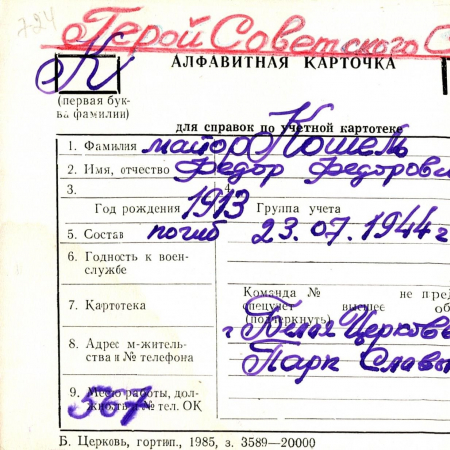 724
Герой Советского С
К
АЛФАВИТНАЯ КАРТОЧКА
(первая бук-
ва фамилии)
для справок по учетной картотеке
1. Фамилия майор Кошель
2. Имя, отчество Федор Федорови
3. 4.
Год рождения 1913 Группа учета
5. Состав погиб 23.07.1944 г
6. Годность к воен-
службе
Команда № не пред
7. Картотека спецучет высшее об
(подчеркнуть)
г Белая Церковь
8. Адрес м-жительс-
тва и № телефона
Парк Славы
9. Место работы, дол-
жность и № тел. ОК
567
Б. Церковь, гортип., 1985, з. 3589—20000